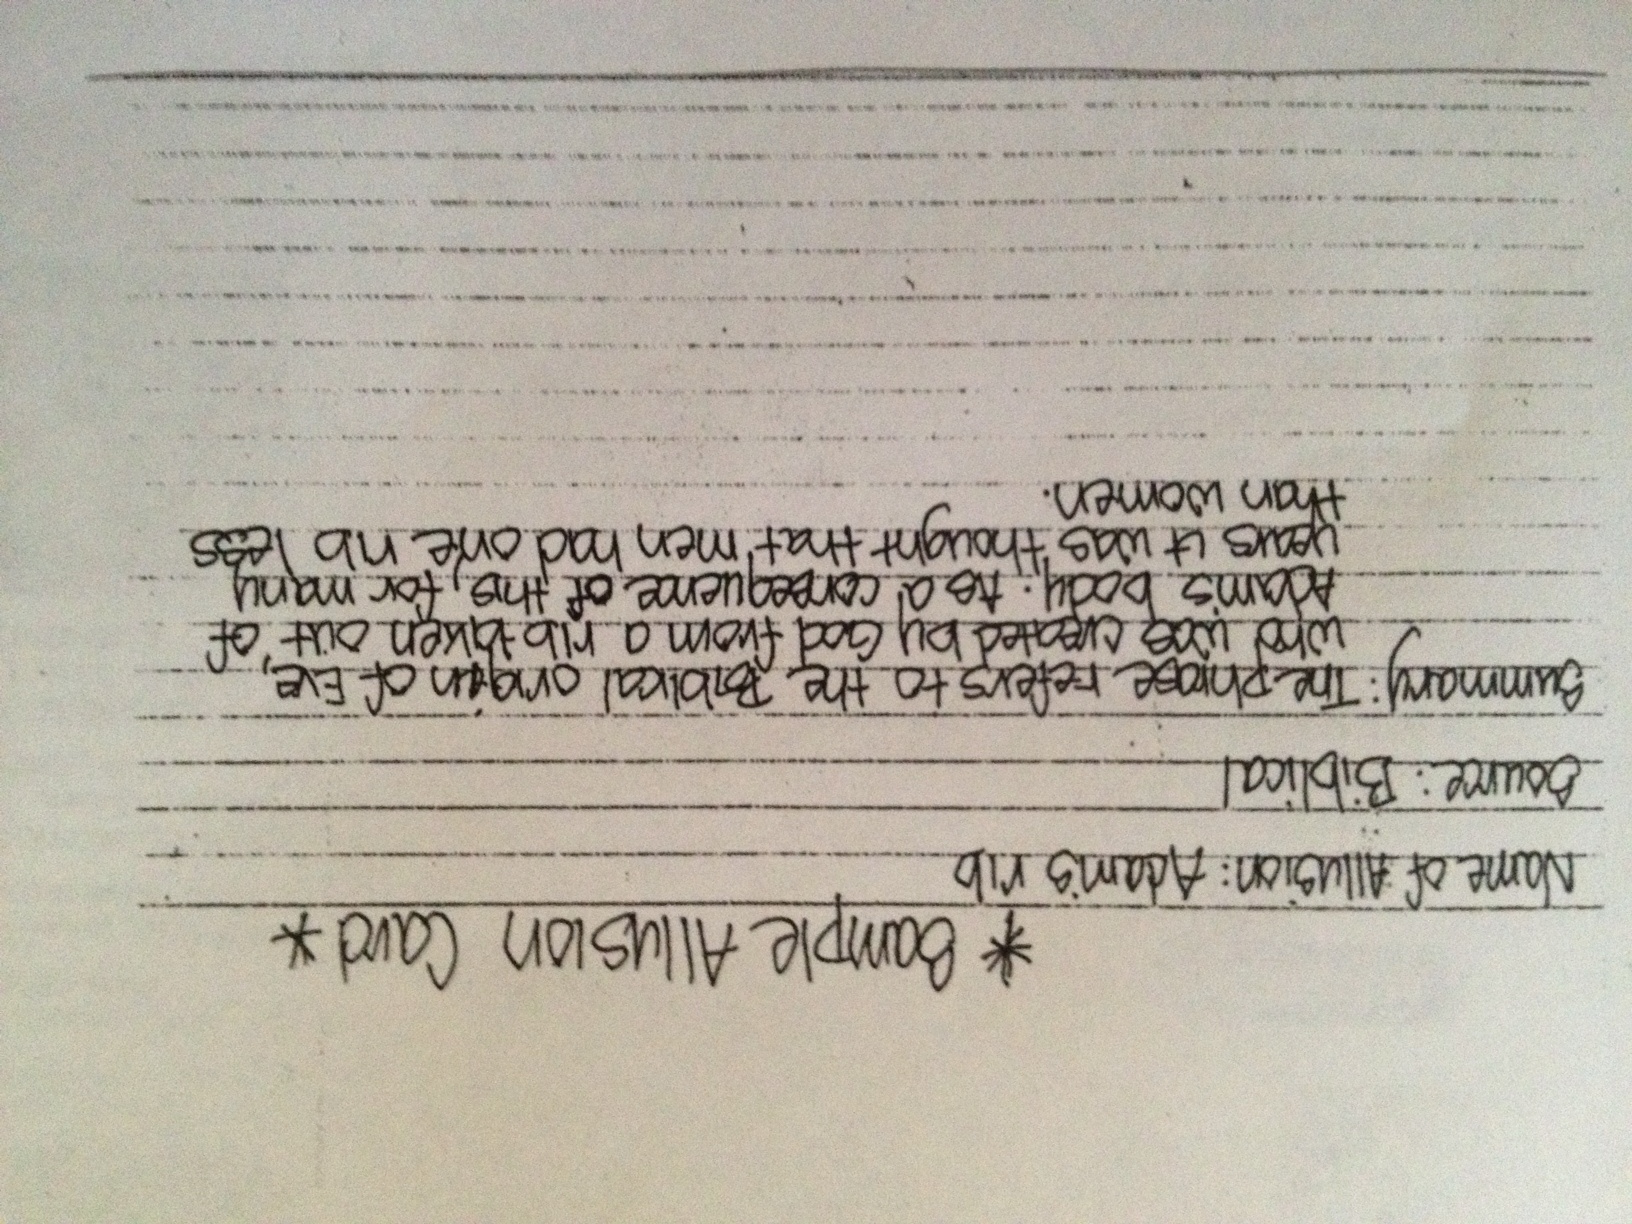 * Sample Allusion Card *
Name of Allusion: Adam's rib
Source: Biblical
Summary: The phrase refers to the Biblical origin of Eve,
who was created by God from a rib taken out of
Adam's body. As a consequence of this, for many
years it was thought that men had one rib less
than women.